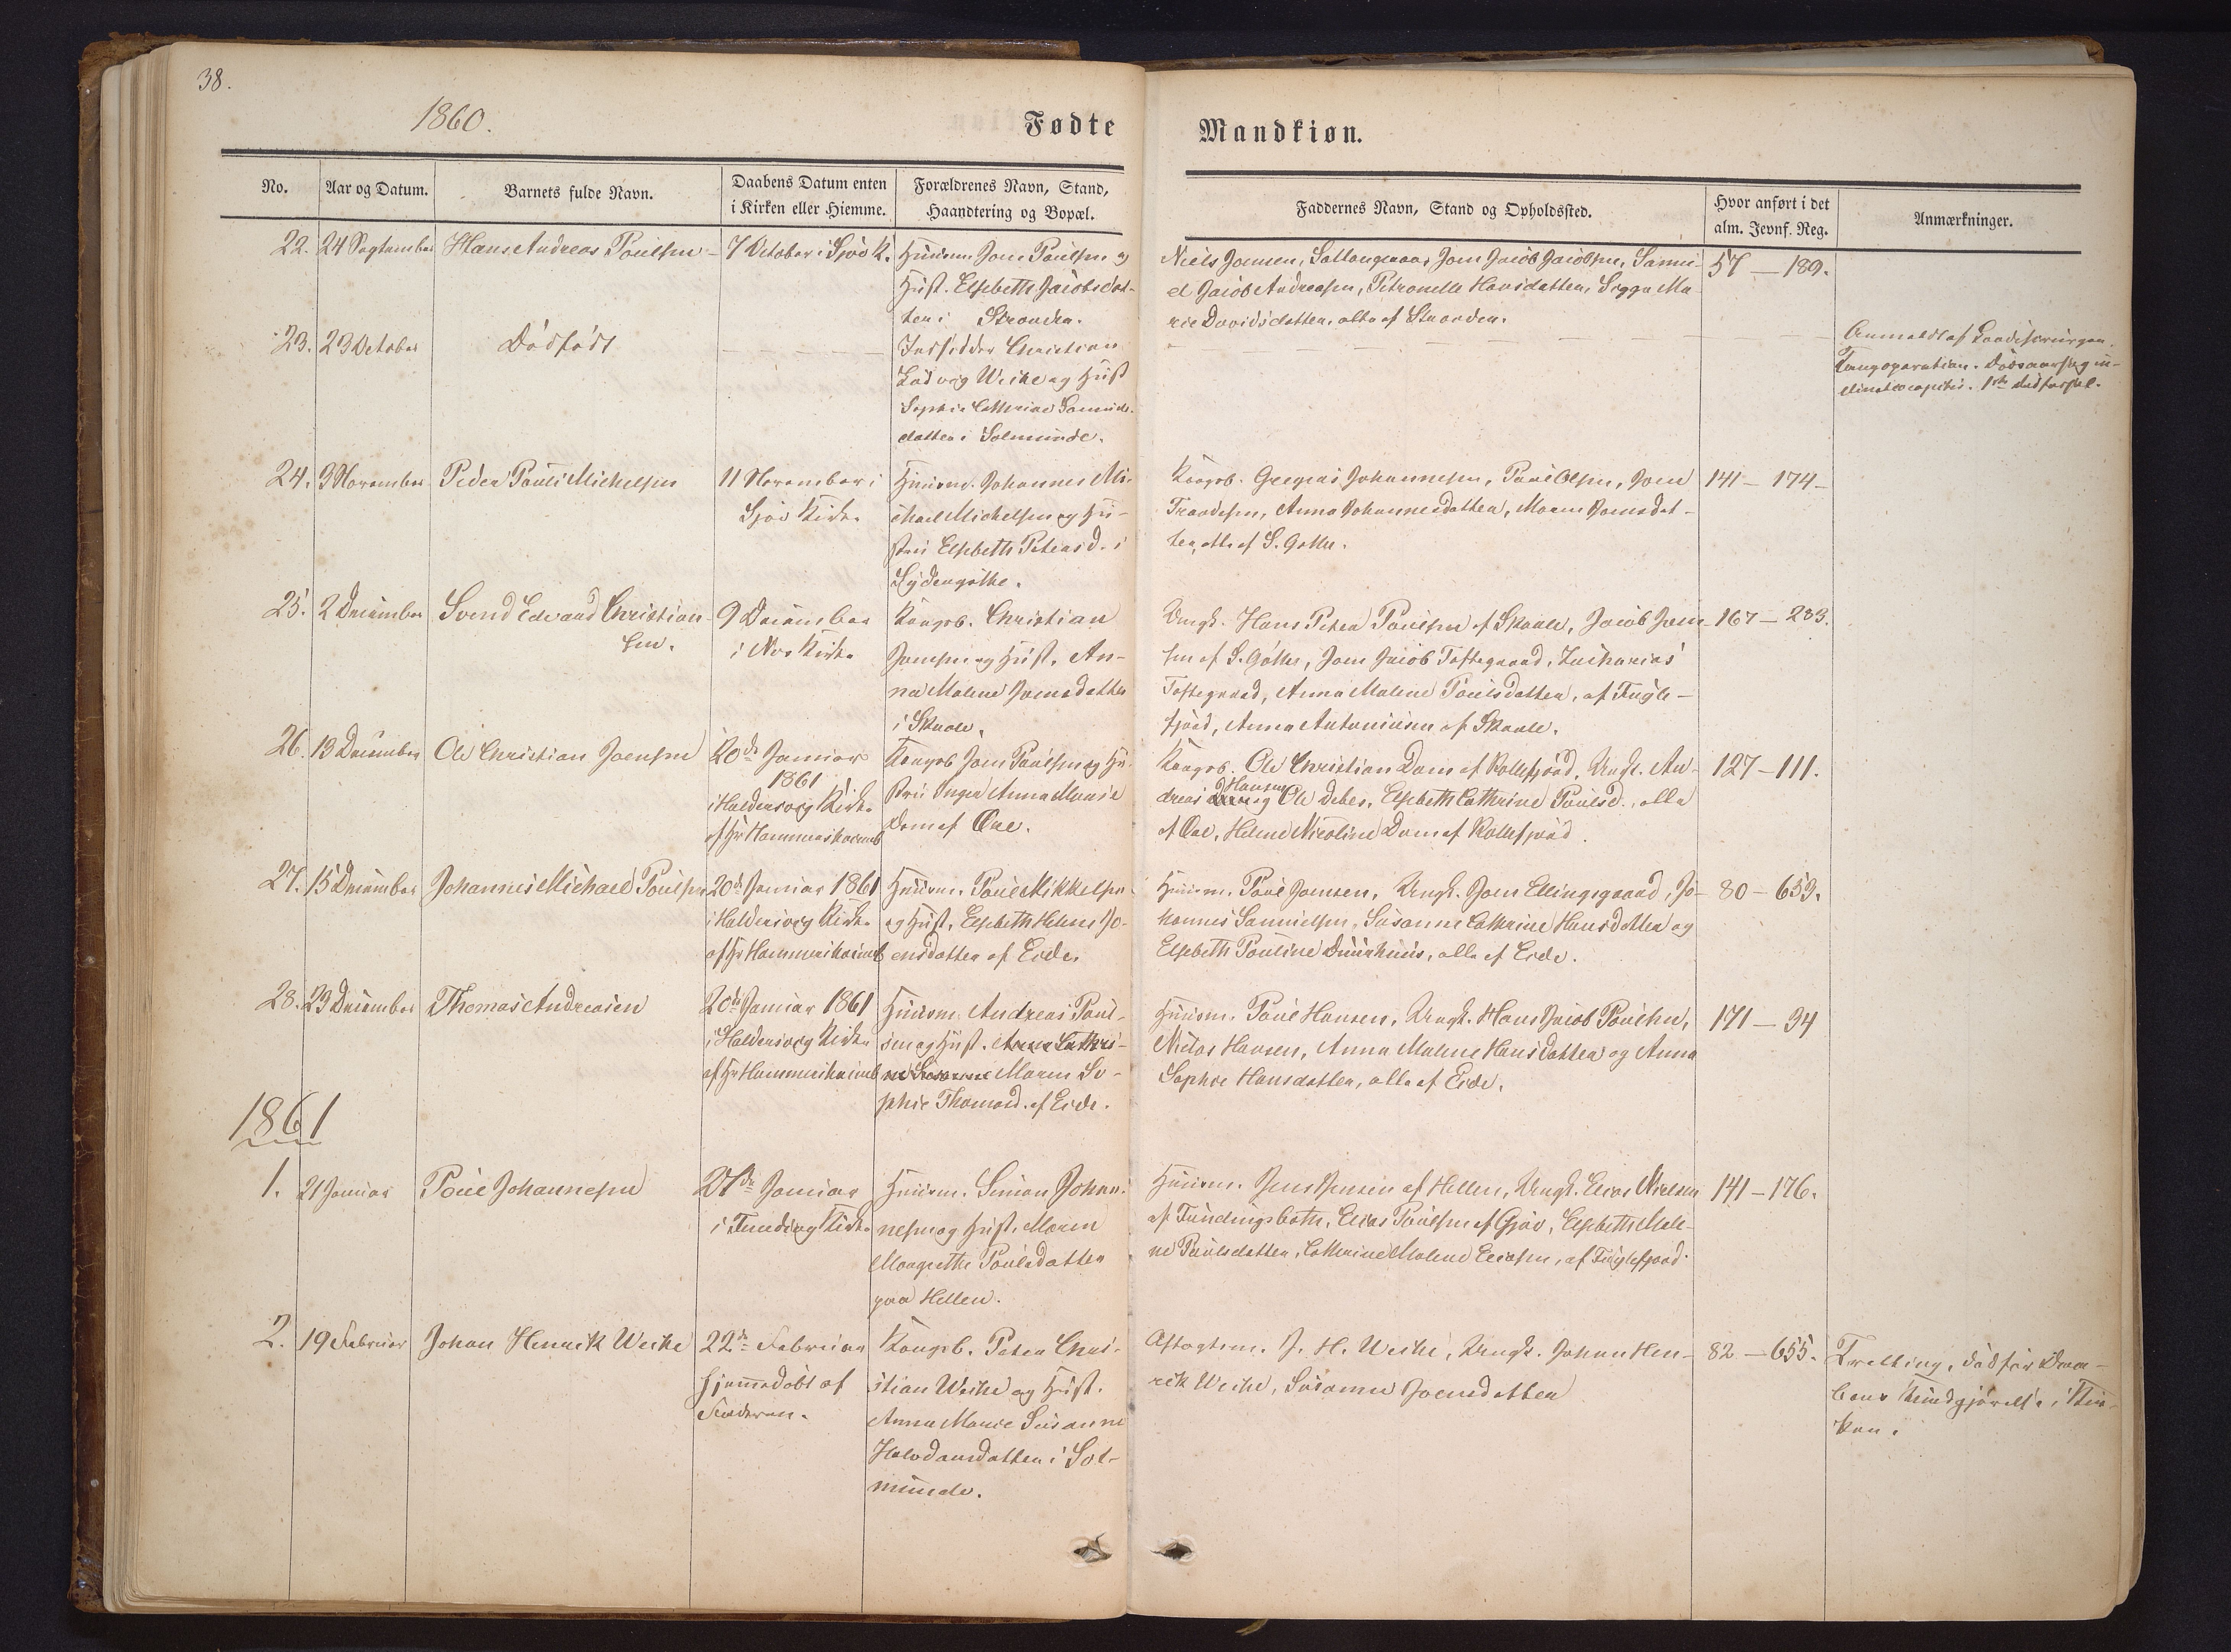 38.
1860.
Fødte
Mandkiøn.
No.
Aar og Datum.
Barnets fulde Navn.
Daabens Datum enten
i Kirken eller Hiemme.
Forældrenes Navn, Stand,
Haandtering og Bopæl.
Faddernes Navn, Stand og Opholdssted.
Hvor anført i det
alm. Jevnf. Reg.
Anmærkninger.
22.
24 September
Hans Andreas Poulsen
7 October i Sjov K.
Huusm. Joen Poulsen og
Hust. Elsebeth Jacobsdat-
ter i Strænder.
Niels Joensen, Joen Jacob Jacobsen, Samu-
el Jacob Andreasen, Petronelle Hansdatter, Sigga Ma-
rie Davidsdatter, alle af Strænder.
57 — 189.
23.
23 October
Dødfødt
Indsidder Christian
Ludvig Weihe og Hust
Sophie Cathrine Samuels-
datter i Solmunde.
Anmeldt af Landchirurgen.
Tangoperation.
24.
3 November
Peder Pauli Michelsen
11 November i
Sjov Kirke
Huusm. Johannes Mi-
chael Michelsen og Hu-
stru Elsebeth Petersd. i
Sydengøthe.
Kongsb. Gregers Johannesen, Poul Olsen, Joen
Trondesen, Anna Johannesdatter, Maren Joensdat-
ter, alle af S. Gøthe.
141 — 174
25.
2 December
Svend Edvard Christian-
sen.
9 December
i Kirke
Kongsb. Christian
Joensen og Hust. An-
na Malene Joensdatter
i Skaale.
Ungk. Hans Peter Poulsen af Skaale, Jacob Joen-
sen af S. Gøthe, Joen Jacob Toftegaard, Zacharias
Toftegaard, Anna Malene Poulsdatter, af Fugle-
fjord, Anna Antoniusen af Skaale.
167 — 233.
26.
13 December
Ole Christian Joensen
20de Januar
1861
i Haldersvig Kirke
af Hr Hammershaimb
Kongsb Joen Poulsen og Hu-
stru Inger Anna Marie
Dam af Ore.
Kongsb. Ole Christian Dam af Kollefjord, Ungk. An-
dreas Hansen og Ole Debes, Elsebeth Cathrine Poulsd., alle
af Ore, Helene Nicoline Dam af Kollefjord.
127 — 111.
27.
15 December
Johannes Michael Poulsen
20de Januar 1861
i Haldersvig Kirke
af Hr Hammershaimb
Huusm. Poul Mikkelsen
og Hust. Elsebeth Helene Jo-
ensdatter af Eide.
Huusm. Poul Joensen, Ungk. Joen Ellingsgaard, Jo-
hannes Samuelsen, Susanne Cathrine Hansdatter og
Elsebeth Pouline Duurhuus, alle af Eide.
80 — 653.
28.
23 December
Thomas Andreasen
20de Januar 1861
i Haldersvig Kirke
af Hr Hammershaimb
Huusm. Andreas Poul-
sen og Hust. Anna Cathri-
ne Susanne Maren So-
phie Thomasd. af Eide.
Huusm. Poul Hansen, Ungk. Hans Jacob Poulsen,
Niclas Hansen, Anna Malene Hansdatter og Anna
Sophie Hansdatter, alle af Eide.
171 — 94
1861
1.
21 Januar
Poul Johannesen
27de Januar
i Funding Kirke
Huusm. Simon Johan-
nesen og Hust. Maren
Margrethe Poulsdatter
paa Hellen.
Huusm. Jens Jensen af Hellen, Ungk. Elias Nielsen
af Fundingsbotn, Elias Poulsen af Gjov, Elsebeth Male-
ne Poulsdatter, Cathrine Malene Eliasen, af Fuglefjord.
141 — 176.
2.
19 Februar
Johan Henrik Weihe
22de Februar
hjemmedøbt af
Faderen.
Kongsb. Peter Chri-
stian Weihe og Hust.
Anna Marie Susanne
Halvdansdatter i Sol-
munde.
Aftægtsm. J. H. Weihe, Ungk. Johan Hen-
rik Weihe, Susanne Joensdatter
82 — 655.
Tvelling, død før Daa-
bens Kundgjørelse i Kir-
ken.